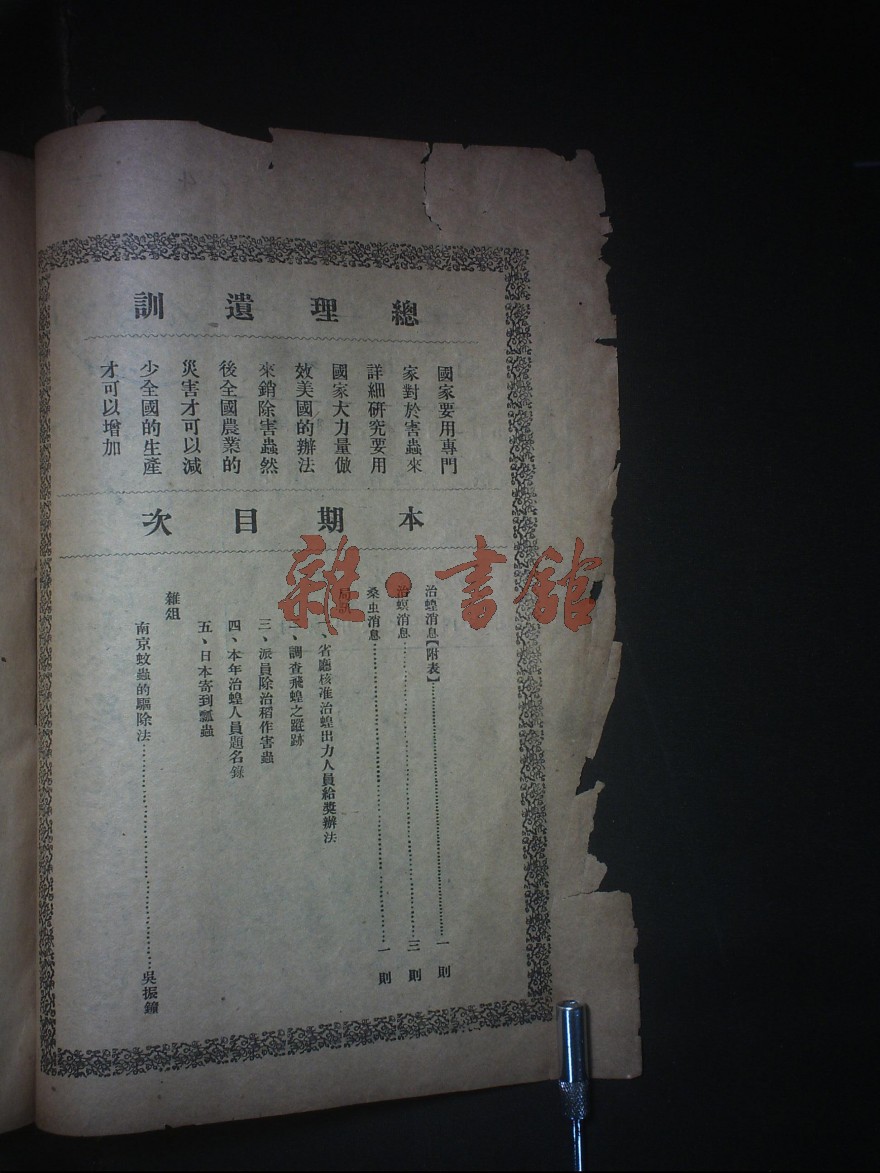 總理遺訓
國家要用專門
家對於害蟲來
詳細研究要用
國家大力量倣
效美國的辦法
來銷除害蟲然
後全國農業的
災害才可以減
少全國的生產
才可以增加
本期目次
治蝗消息【附表】…………一則
治螟消息…………三則
桑虫消息…………一則
局訊
一、省廳核准治蝗出力人員給獎辦法
二、調查飛蝗之蹤跡
三、派員除治稻作害蟲
四、本年治蝗人員題名錄
五、日本寄到瓢蟲
雜俎
南京蚊蟲的驅除法…………吳振鐘
雜·書館